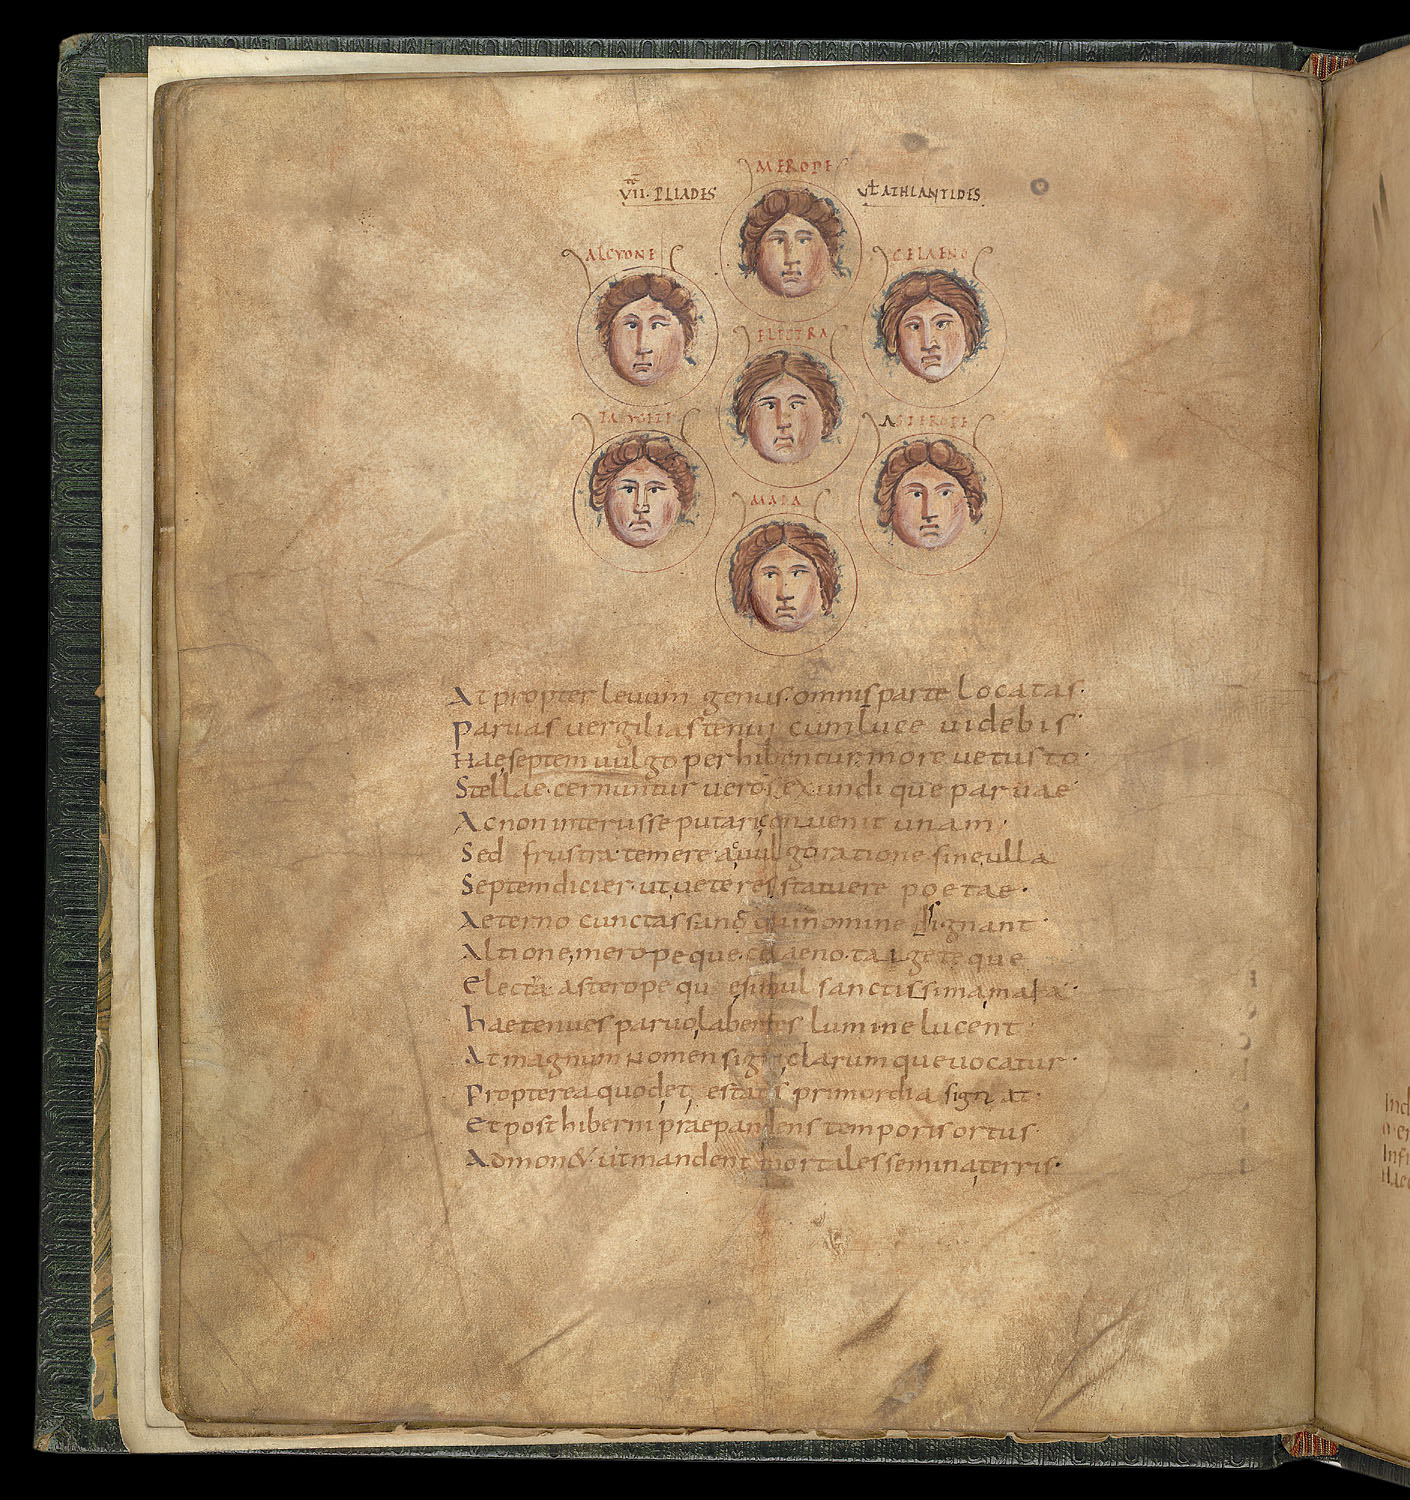 MEROPE
VII. PLIADES
ƚ ATHLANTIDES.
ALCYONE
CELAENO
ELECTRA
ASTEROPE
MAIA
At propter leuum genus. omnis parte Locatas.
Paruas uergilias tenui cum luce uidebis
Hae septem uulgo perhibentur more uetusto.
Stellae. cernuntur uero sex undique paruae
Ac non interiisse putari conuenit unam;
Sed frustra. temere a uulgo ratione sine ulla
Septem dicier. ut ueteres statuere poetae.
Aeterno cunctas nomine signant
Altione, meropeque. celaeno. taigeteque
Electra asteropeque simul sanctissima maia.
Hae tenues paruo labentes lumine lucent
At magnum Nomen signi clarumque uocatur.
Propterea quod et, estatis primordia signat.
Et post hiberni praepandens temporis ortus.
Admon& ut mandent mortales semina terris.